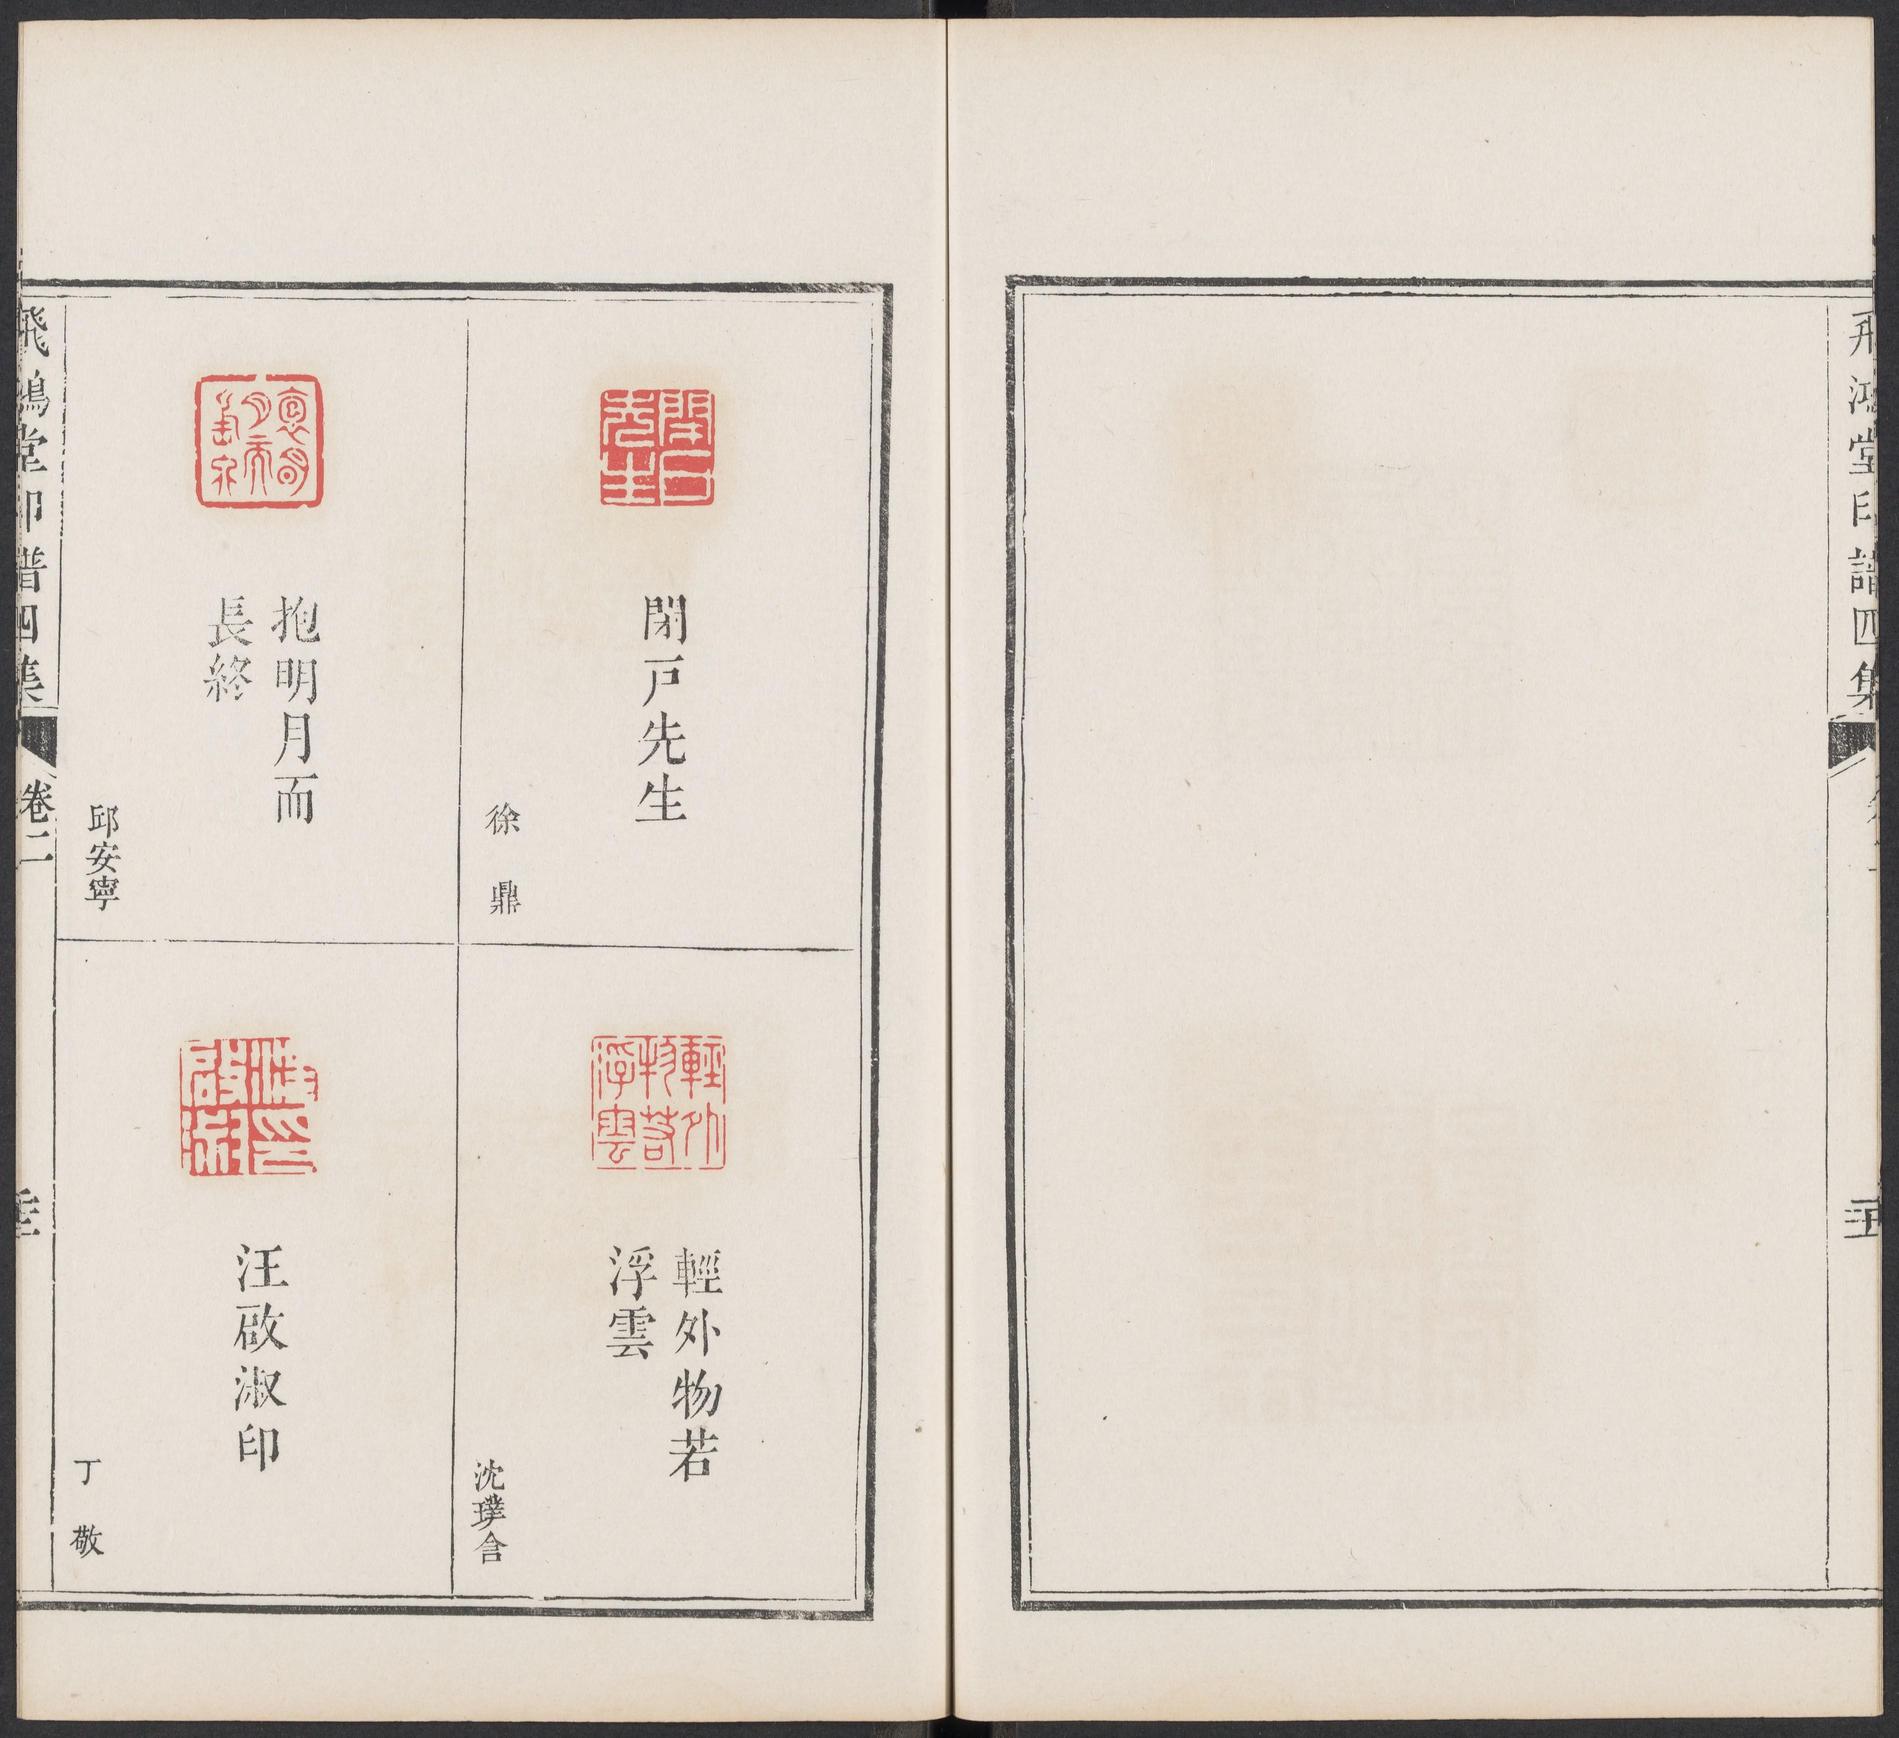 飛鴻堂印譜四集
閉戸先生
徐鼎
輕外物若
浮雲
沈璞含
抱明月而
長終
邱安寧
汪啟淑印
丁敬
飛鴻堂印譜四集
卷二